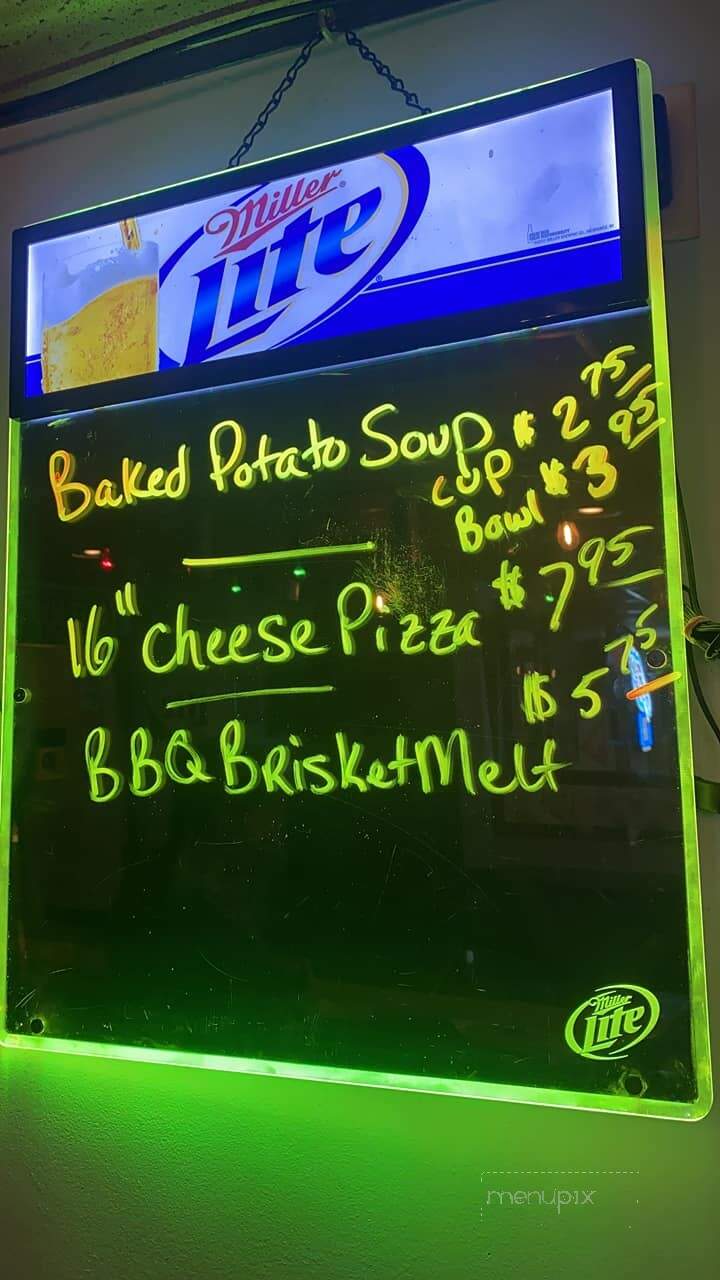 Miller
Lite
Baked Potato Soup $2 75
Cup
Bowl $3 95
16" Cheese Pizza $7 95
$5 75
BBQ Brisket Melt
Miller
Lite
menupix